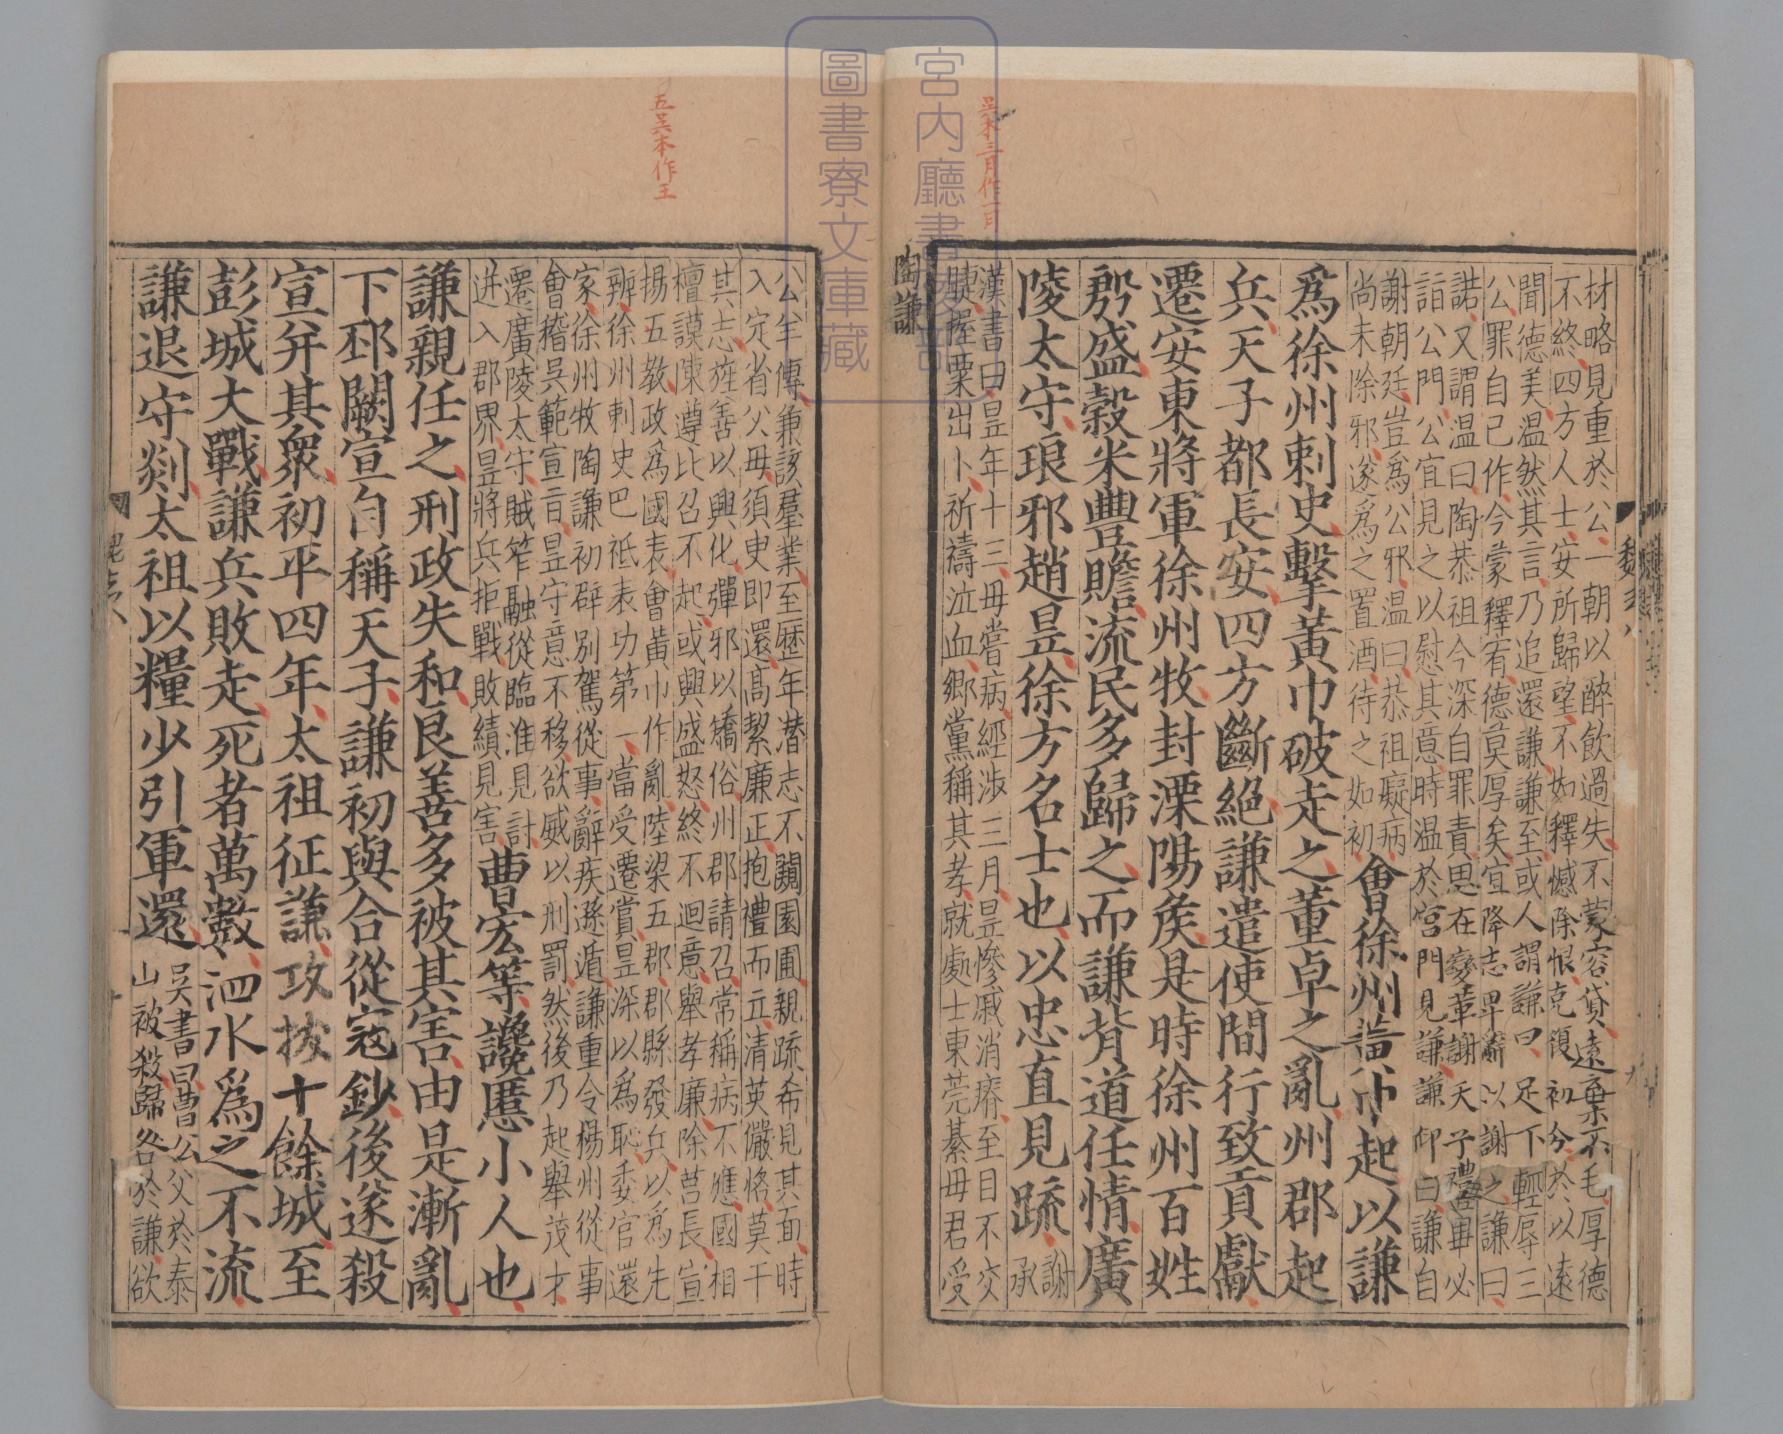 宮内廳書陵部
圖書寮文庫藏
吳本三月作一日
五吳本作王
材略見重於公一朝以醉飲過失不蒙容貸遠棄不毛厚德
不終四方人士安所歸望不如釋憾除恨克復初分於以遠
聞德美温然其言乃追還謙謙至或人謂謙曰足下輕辱三
公罪自己作今蒙釋宥德莫厚矣宜降志卑辭以謝之謙曰
諾又謂温曰陶恭祖今深自罪責思在變革謝天子禮畢必
詣公門公宜見之以慰其意時温於宮門見謙謙仰曰謙自
謝朝廷豈爲公邪温曰恭祖癡病
尚未除邪遂爲之置酒待之如初
會徐州黃巾起以謙
爲徐州刺史擊黃巾破走之董卓之亂州郡起
兵天子都長安四方斷絕謙遣使間行致貢獻
遷安東將軍徐州牧封溧陽侯是時徐州百姓
殷盛穀米豐贍流民多歸之而謙背道任情廣
陵太守琅邪趙昱徐方名士也以忠直見疏謝承
漢書曰昱年十三母嘗病經涉三月昱慘戚消瘠至目不交
睫握粟出卜祈禱泣血鄉黨稱其孝就處士東莞綦毋君受
陶謙
公羊傳兼該羣業至歷年潛志不闚園圃親疏希見其面時
入定省父母須臾即還高絜廉正抱禮而立清英儼恪莫干
其志旌善以興化殫邪以矯俗州郡請召常稱病不應國相
檀謨陳遵比召不起或興盛怒終不迴意舉孝廉除莒長宣
揚五教政爲國表會黃巾作亂陸梁五郡郡縣發兵以爲先
辨徐州刺史巴祗表功第一當受遷賞昱深以爲恥委官還
家徐州牧陶謙初辟別駕從事辭疾遜遁謙重令揚州從事
會稽吳範宣旨昱守意不移欲威以刑罰然後乃起舉茂才
遷廣陵太守賊笮融從臨淮見討
迸入郡界昱將兵拒戰敗績見害
曹宏等讒慝小人也
謙親任之刑政失和良善多被其害由是漸亂
下邳闕宣自稱天子謙初與合從寇鈔後遂殺
宣并其衆初平四年太祖征謙攻拔十餘城至
彭城大戰謙兵敗走死者萬數泗水爲之不流
謙退守剡太祖以糧少引軍還
吳書曰曹公父於泰
山被殺歸咎於謙欲